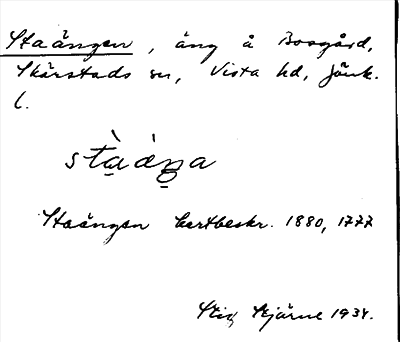 Staängen, äng å Bosgård,
Skärstads sn, Vista hd, Jönk.
l.
stàáŋa
Staängen kartbeskr. 1880, 1777
Stig Stjärne 1934.